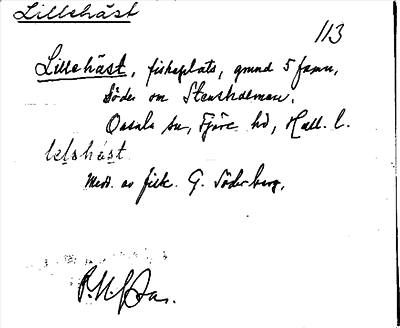 Lillehäst
113
Lillehäst, fiskeplats, grund 5 famn,
Söder om Stensholmen.
Onsala sn, Fjäre hd, Hall. l.
lelshást
Medd. av fisk. G. Söderberg.